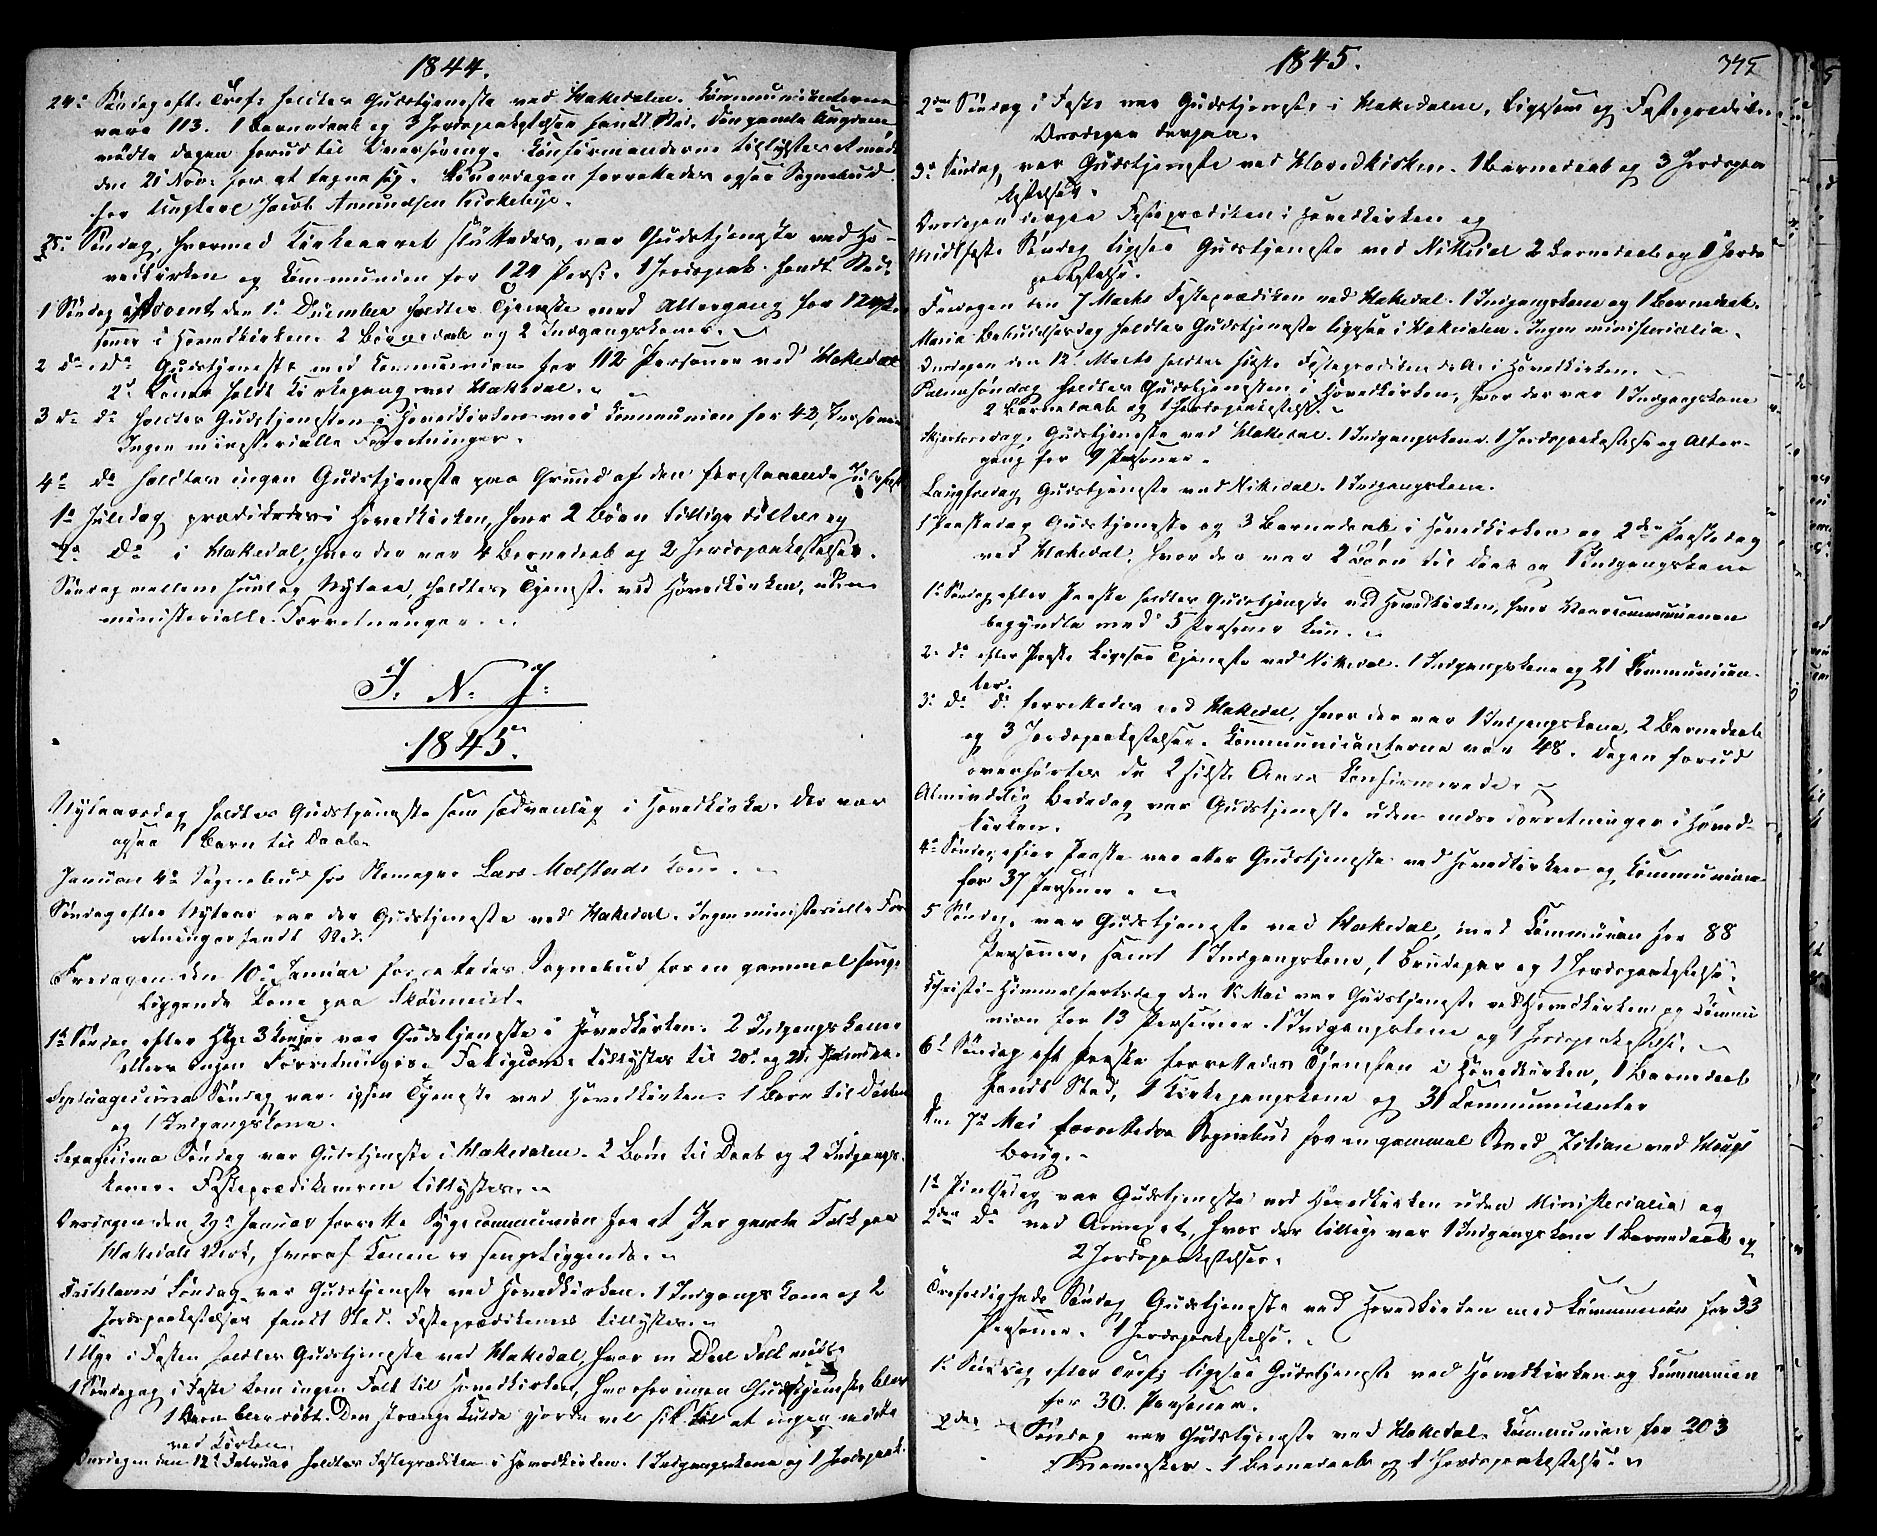 1844.
24de Søndag eft. Tref: holdtes Gudstjeneste ved Hakedalen. Communicanterne
vare 113. 1 Barnedaab og 3 Jordspaakastelser fandt Sted. Den gamle Ungdom
mødte dagen forud til Overhøring. Confirmanderne tilsystes at møde
den 21 Nov: for at tegne sig. Løverdagen forrettedes ogsaa Sognebud
for Ungkarl Jacob Amundsen Kirkebye.
25de Søndag, hvormed Kirkeaaret sluttedes, var Gudstjeneste ved Ho-
vedkirken og Communion for 124 Pers: 1 Jordspaak. fandt Sted.
1 Søndag i Advent den 1ste December holdtes Tjeneste med Altergang for
soner i Hovedkirken. 2 Børnedaab og 2 Indgangskoner.
2 do i do Gudstjeneste med Communion for 112 Personer ved Hakedal
2de Koner holdt Kirkegang ved Hakedal.
3 do do holdtes Gudstjenesten i Hovedkirken med Communion for 42 Personer
Ingen ministerielle Forretninger.
4de do holdtes ingen Gudstjeneste paa Grund af den forestaaende Julefest
1ste Juledag prædikedes i Hovedkirken, hvor 2 Børn tillige døbtes og
2de do i Hakedal, hvor der var 4 Barnedaab og 2 Jordspaakastelser.
Søndag mellem Juul og Nytaar, holdtes Tjeneste ved Hovedkirken, uden
ministerielle Forretninger.
I. N. J:
1845.
Nytaarsdag holdtes Gudstjeneste som sædvanlig i Hovedkirke. Der var
ogsaa 1 Barn til Daab.
Januar 4de Sognebud for Lars Molstads Kone.
Søndag efter Nytaar var der Gudstjeneste ved Hakedal. Ingen ministerielle For-
retninger fandt Sted.
Fredagen den 10de Januar forrettedes Sognebud for en gammel senge-
liggende Kone paa
1ste Søndag efter Hlg: 3 Konger var Gudstjeneste i Hovedkirken. 2 Indgangskoner
ellers Ingen Forretninger. tillystes til 20de og 21de
Septuagesima Søndag var ligesaa Tjeneste ved Hovedkirken. 1 Barn til Daaben
og 1 Indgangskone.
Sexagesima Søndag var Gudstjeneste i Hakedalen. 2 Børn til Daab og 2 Indgangs-
koner. Fasteprædikenerne tillystes.
Onsdagen den 29de Januar forrettedes Sygecommunion for et Par gamle Folk paa
Hakedals Verk, hvoraf Konen er sengeliggende.
Fastelavns Søndag var Gudstjeneste ved Hovedkirken. 1 Indgangskone og 2
Jordspaakastelser fandt Sted. Fasteprædikenerne tillystes.
1 Uge i Fasten holdtes Gudstjeneste ved Hakedal, hvor en Deel Folk mødte
1 Søndag i Faste kom ingen Folk til Hovedkirken, hvorfor ingen Gudstjeneste blev
1 Barn blev døbt. Den strenge Kulde gjorde vel sit til at ingen mødte
ved Kirken.
Onsdagen den 12te Februar holdtes Fasteprædiken i Hovedkirken. 1 Indgangskone og 1 Jordspaak.
1845.
375
2den Søndag i Faste var Gudstjeneste i Hakedalen, ligesom og Fasteprædiken
Onsdagen derpaa.
3de Søndag, var Gudstjeneste ved Hovedkirken. 1 Barnedaab og 3 Jordspaa-
kastelser.
Onsdagen derpaa Fasteprædiken i Hovedkirken og
Midfaste Søndag ligesaa Gudstjeneste ved Nittedal 2 Barnedaab og 1 Jords-
paakastelse.
Fredagen den 7 Marts Fasteprædiken ved Hakedal. 1 Indgangskone og 1 Barnedaab.
Maria Bebudelsesdag holdtes Gudstjeneste ligesaa i Hakedalen. Ingen ministerialia.
Onsdagen den 12te Marts holdtes sidste Fasteprædiken d: A: i Hovedkirken.
Palmesøndag holdtes Gudstjenesten i Hovedkirken, hvor der var 1 Indgangskone
2 Barnedaab og 1 Jordspaakastelse.
Skjertorsdag. Gudstjeneste ved Hakedal. 1 Indgangskone. 1 Jordspaakastelse og Alter-
gang for 9 Personer.
Langfredag Gudstjeneste ved Nittedal. 1 Indgangskone.
1 Paaskedag Gudstjeneste og 3 Barnedaab i Hovedkirken og 2den Paaskedag
ved Hakedal, hvor der var 2 Børn til Daab og 1 Indgangskone
1ste Søndag efter Paaske holdtes Gudstjeneste ved Hovedkirken, hvor Vaarcommunionen
begyndte med 5 Personer kun.
2. do efter Paaske ligesaa Tjeneste ved Nittedal. 1 Indgangskone og 21 Communican-
ter.
3de do do forrettedes ved Hakedal, hvor der var 1 Indgangskone, 2 Barnedaab
og 3 Jordspaakastelser. Communicanterne var 48. Dagen forud
overhørtes de 2 sidste Aars Confirmerede.
Almindelig Bededag var Gudstjeneste uden andre Forretninger i Hoved-
kirken.
4de Søndag efter Paaske var atter Gudstjeneste ved Hovedkirken og Communion
for 37 Personer.
5 Søndag, var Gudstjeneste ved Hakedal, med Communion for 88
Personer, samt 1 Indgangskone, 1 Brudepar og 1 Jordspaakastelse.
Christi Himmelfartsdag den 1ste Mai var Gudstjeneste ved Hovedkirken og Commu-
nion for 13 Personer. 1 Indgangskone og 1 Jordspaakastelse.
6te Søndag eft Paaske forrettedes Tjenesten i Hovedkirken, 1 Barnedaab
fandt Sted, 1 Kirkegangskone og 31 Communicanter
Den 7de Mai forrettedes Sognebud for en gammel
Brug.
1ste Pintsedag var Gudstjeneste ved Hovedkirken uden Ministerialia og
2den do ved Annexet, hvor der tillige var 1 Indgangskone 1 Barnedaab og
2 Jordspaakastelser.
Trefoldigheds Søndag Gudstjeneste ved Hovedkirken med Communion for 33
Personer. 1 Jordspaakastelse.
1ste Søndag efter Tref: ligesaa Gudstjeneste ved Hovedkirken og Communion
for 30 Personer.
2den Søndag var Gudstjeneste ved Hakedal. Communion for 203
Mennesker. 1 Barnedaab og 1 Jordspaakastelse.